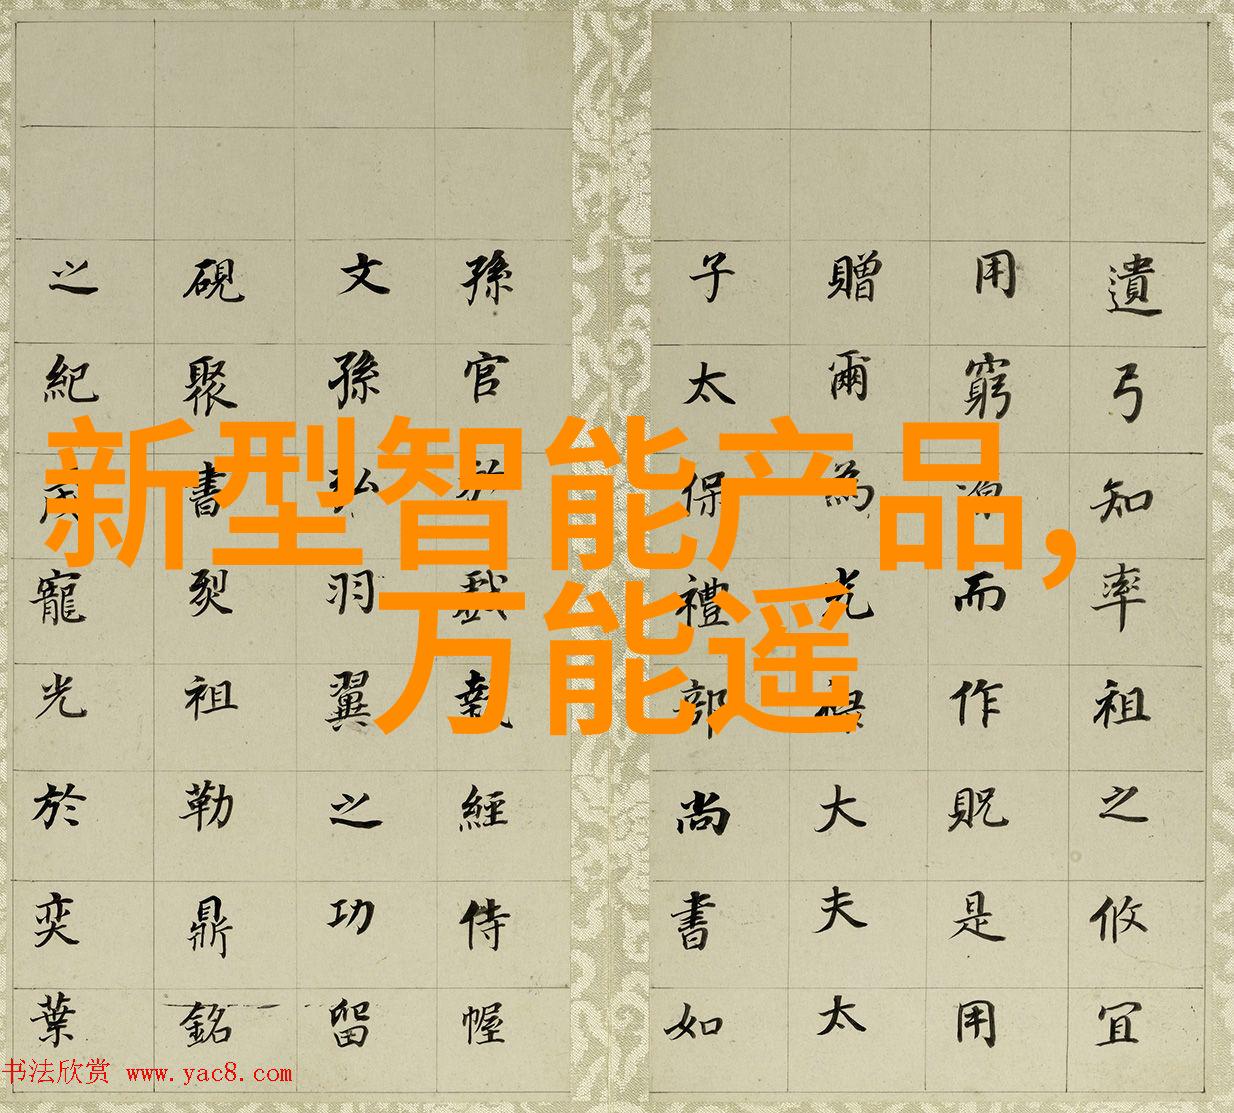 遺弓知率祖之攸宜
用窮源而作貺是用
贈爾為光祿大夫太
子太保禮部尚書如
孫官執經侍幄
文孫弘羽翼之功留
硯聚書烈祖勒鼎銘
之紀寵光於奕葉
新型智能产品,
万能遥
书法欣赏 www.yac8.com